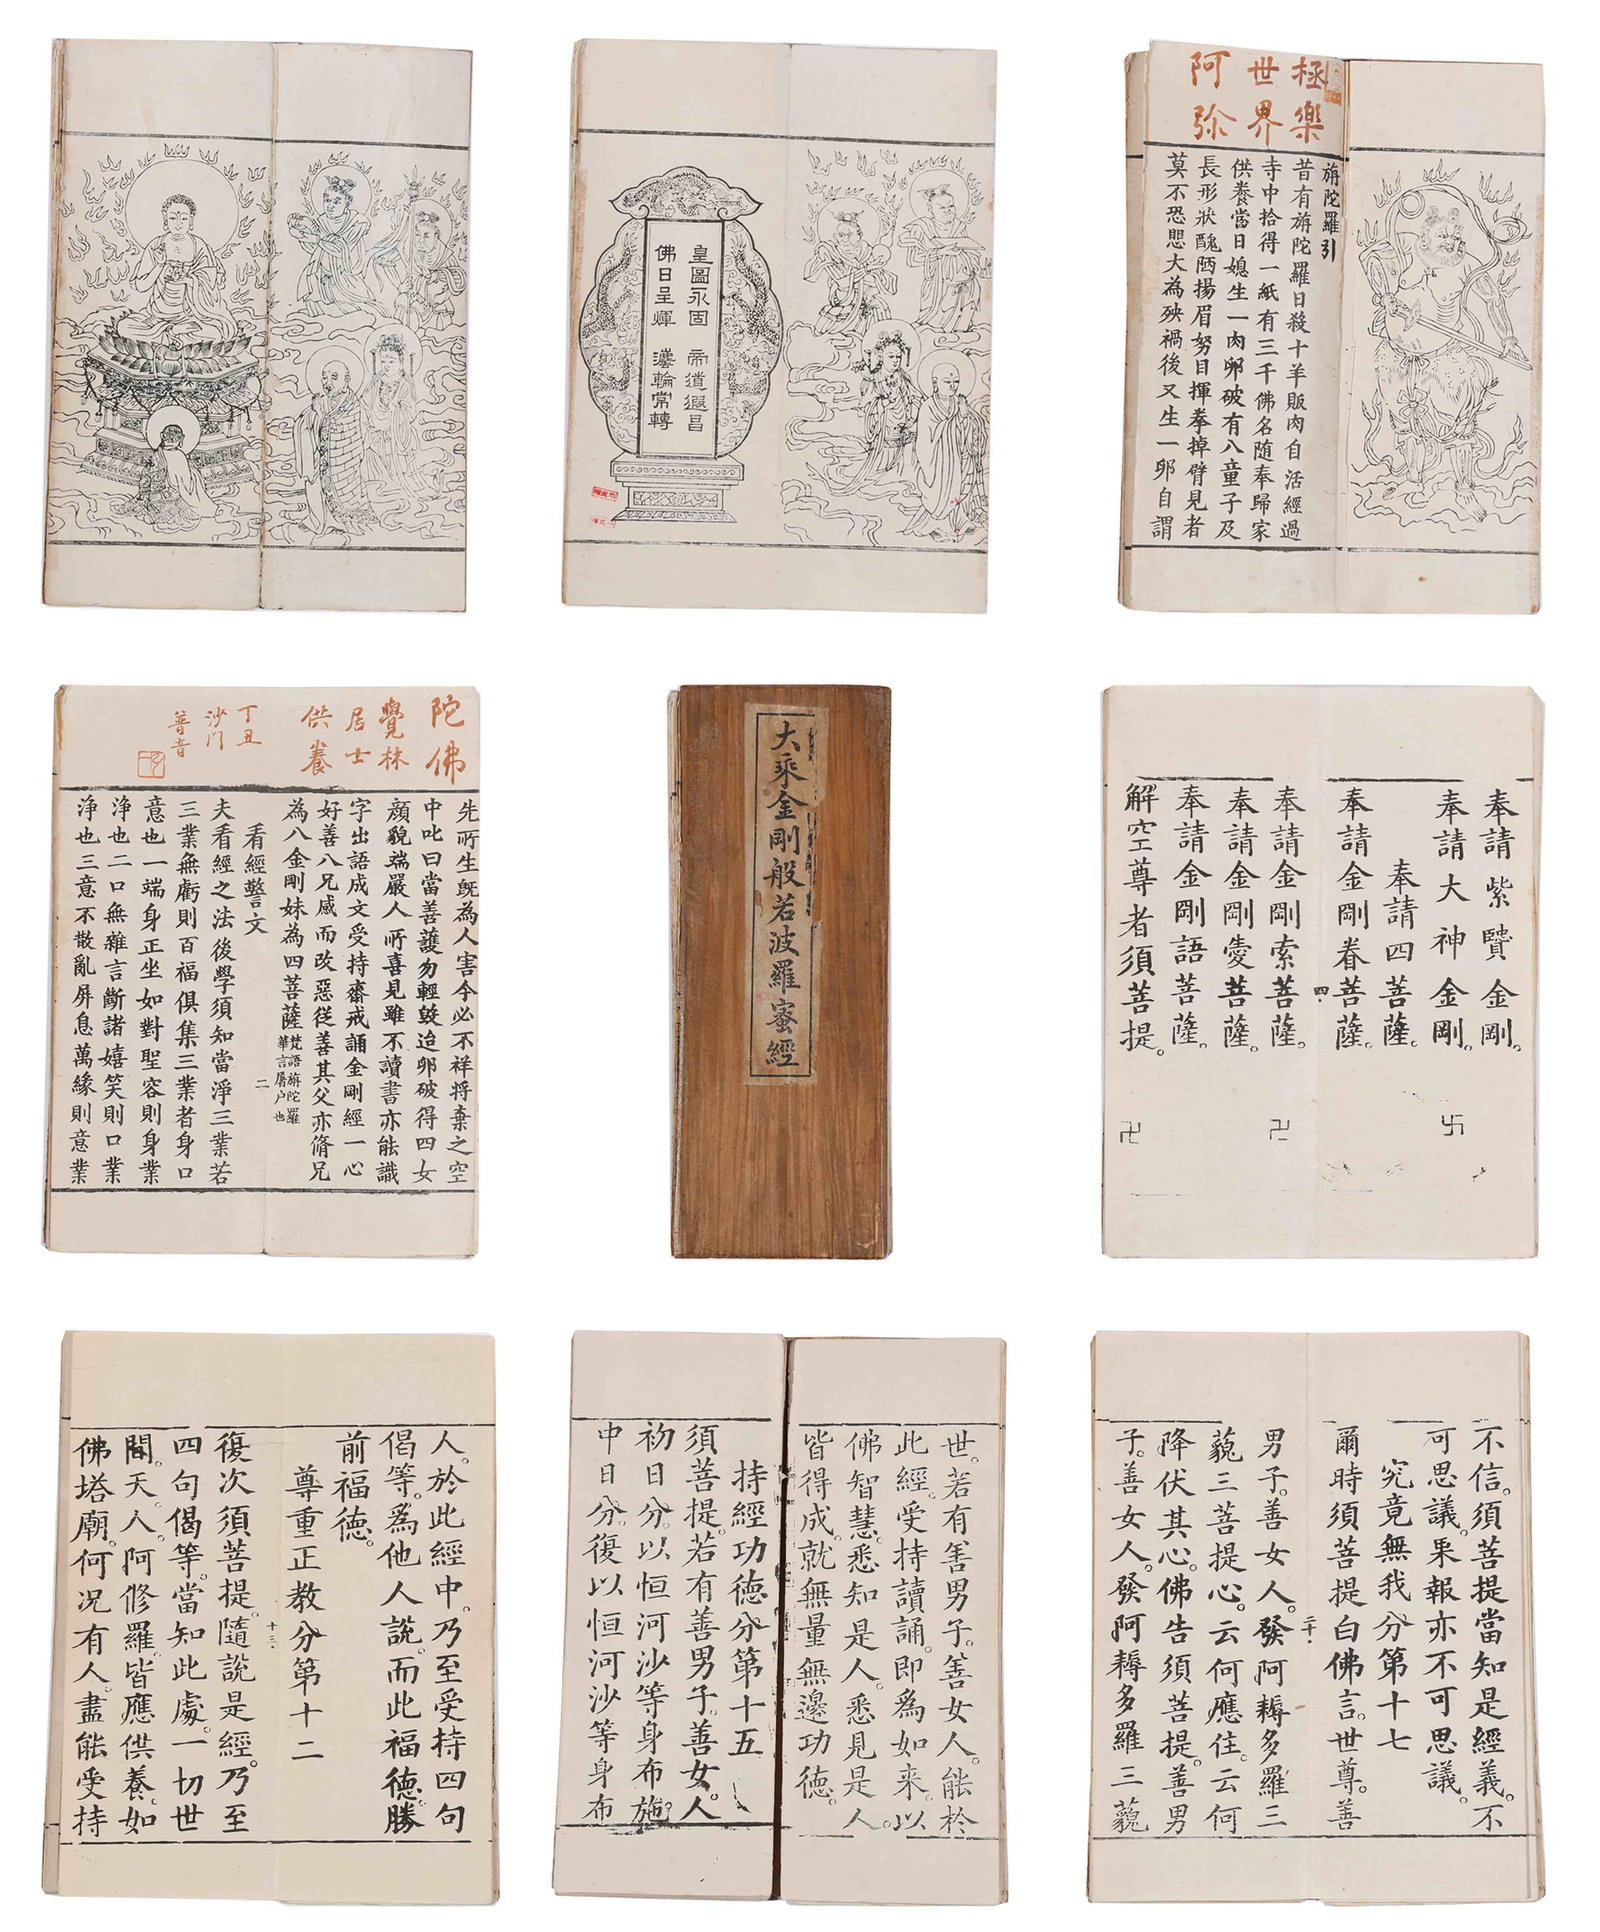 皇圖永固 帝道遐昌
佛日呈輝 灋輪常轉
極樂
世界
阿弥
旃陀羅引
昔有旃陀羅日殺十羊販肉自活經過
寺中拾得一紙有三千佛名随奉歸家
供養當日媳生一肉卵破有八童子及
長形狀醜陋揚眉努目揮拳掉臂見者
莫不恐愳大為殃禍後又生一卵自謂
陀佛
覺林
居士
供養
丁丑
沙门
普音
先所生旣為人害今必不祥將棄之空
中叱曰當善護勿輕毀迨卵破得四女
顔貌端嚴人所喜見雖不讀書亦能識
字出語成文受持齋戒誦金剛經一心
好善八兄感而改惡從善其父亦脩兄
為八金剛妹為四菩薩梵語旃陀羅
華言屠户也
二
看經警文
夫看經之法後學須知當淨三業若
三業無虧則百福俱集三業者身口
意也一端身正坐如對聖容則身業
淨也二口無雜言斷諸嬉笑則口業
淨也三意不散亂屏息萬緣則意業
大乘金剛般若波羅蜜經
奉請紫贒金剛。
奉請大神金剛。卐
奉請四菩薩
奉請金剛眷菩薩。
四
奉請金剛索菩薩。卍
奉請金剛愛菩薩。
奉請金剛語菩薩。
解空尊者須菩提。卍
人。於此經中。乃至受持四句
偈等。爲他人說。而此福德。勝
前福德。
尊重正教分第十二
十三
復次須菩提。隨說是經。乃至
四句偈等。當知此處。一切世
間。天。人。阿修羅。皆應供養。如
佛塔廟。何況有人。盡能受持
世。若有善男子。善女人。能於
此經。受持讀誦。即爲如来。以
佛智慧。悉知是人。悉見是人。
皆得成就無量無邊功德。
持經功德分第十五
須菩提。若有善男子。善女人
初日分。以恒河沙等身布施。
中日分。復以恒河沙等身布
不信。須菩提當知是經義。不
可思議。果報亦不可思議。
究竟無我分第十七
爾時須菩提白佛言。世尊。善
二十
男子。善女人。發阿耨多羅三
藐三菩提心。云何應住。云何
降伏其心。佛告須菩提。善男
子。善女人。發阿耨多羅三藐